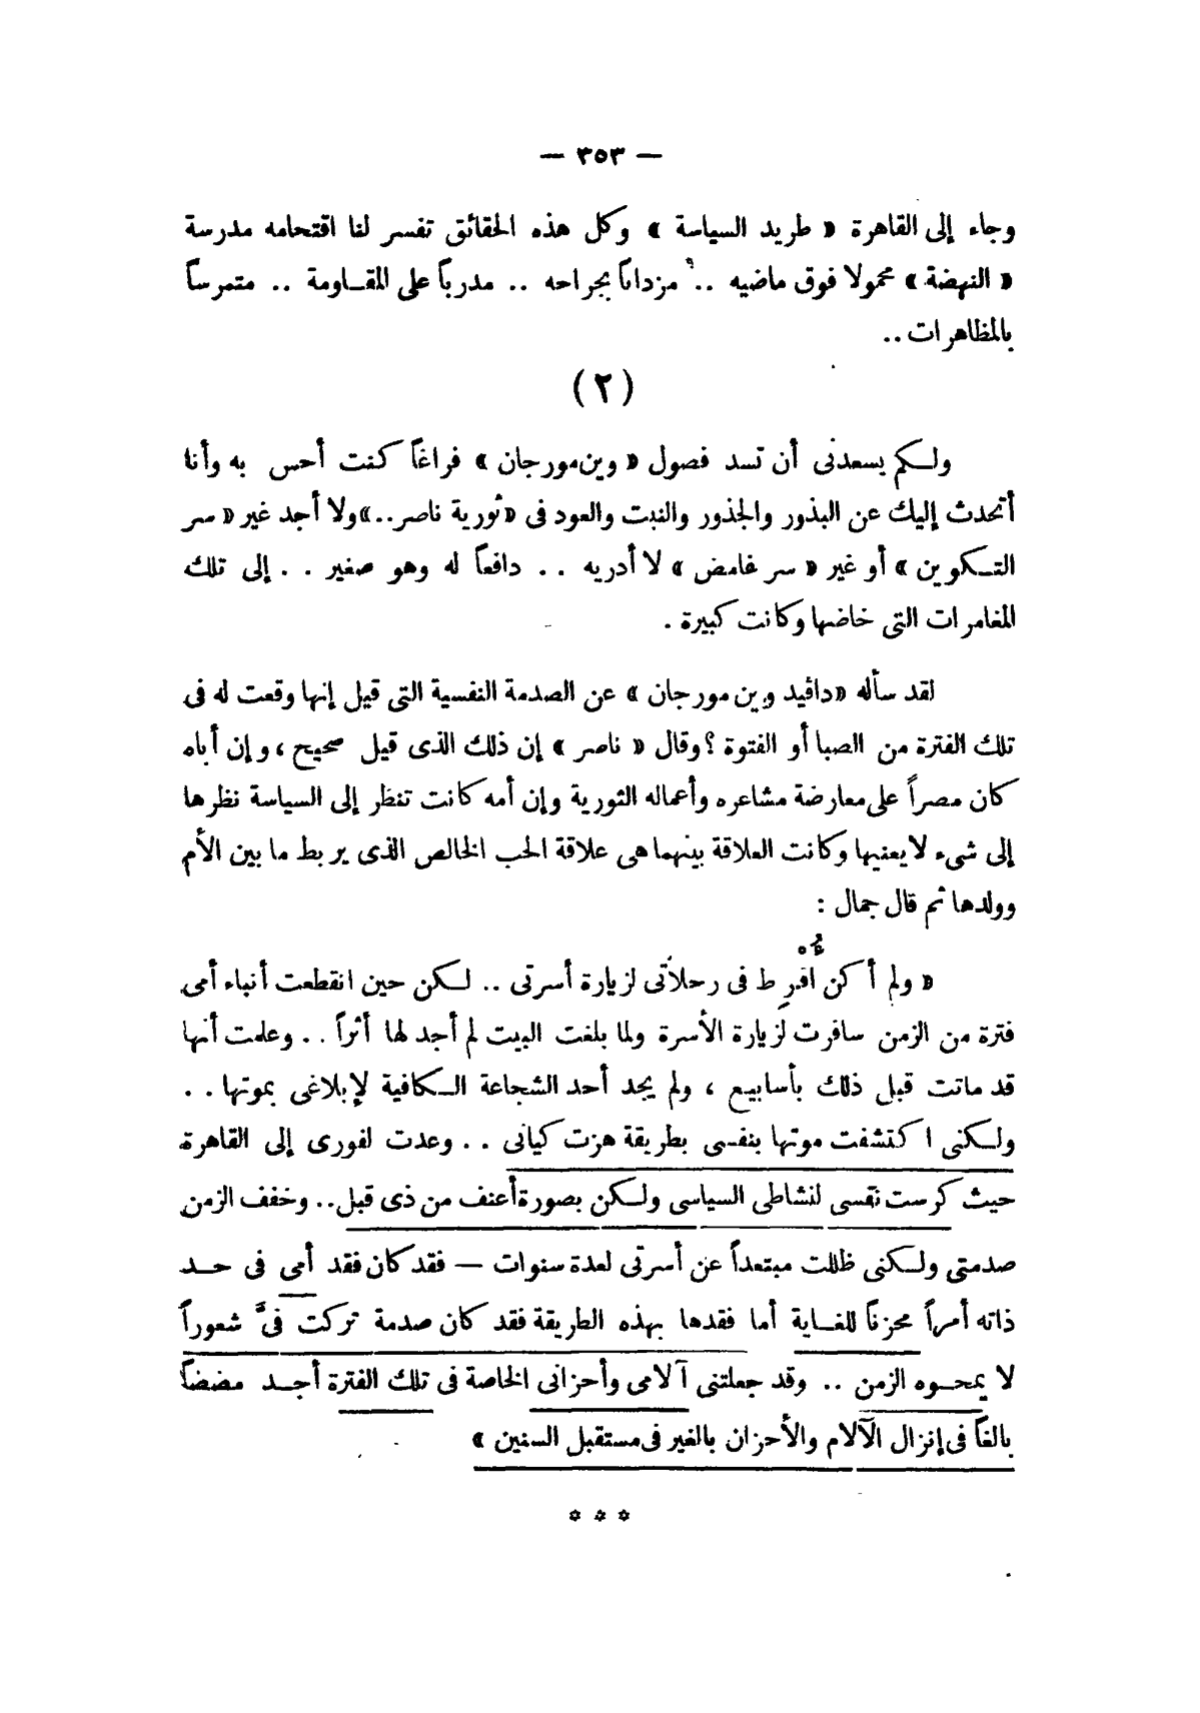 — ٣٥٣ —
وجاء إلى القاهرة « طريد السياسة » وكل هذه الحقائق تفسر لنا اقتحامه مدرسة
« النهضة » محمولا فوق ماضيه .. مزداناً بجراحه .. مدرباً على المقـاومة .. متمرساً
بالمظاهرات ..
(٢)
ولـكم يسعدنى أن تسد فصول « وين مورجان » فراغاً كنت أحس به وأنا
أتحدث إليك عن البذور والجذور والنبت والعود فى « ثورية ناصر..» ولا أجد غير « سر
التـكوين » أو غير « سر غامض » لا أدريه .. دافعاً له وهو صغير .. إلى تلك
المغامرات التى خاضها وكانت كبيرة .
لقد سأله « دافيد وين مورجان » عن الصدمة النفسية التى قيل إنها وقعت له فى
تلك الفترة من الصبا أو الفتوة ؟ وقال « ناصر » إن ذلك الذى قيل صحيح ، وإن أباه
كان مصراً على معارضة مشاعره وأعماله الثورية وإن أمه كانت تنظر إلى السياسة نظرها
إلى شىء لا يعنيها وكانت العلاقة بينهما هى علاقة الحب الخالص الذى يربط ما بين الأم
وولدها ثم قال جمال :
« ولم أكن أفرِط فى رحلاتى لزيارة أسرتى .. لـكن حين انقطعت أنباء أمى
فترة من الزمن سافرت لزيارة الأسرة ولما بلغت البيت لم أجد لها أثراً .. وعلمت أنها
قد ماتت قبل ذلك بأسابيع ، ولم يجد أحد الشجاعة الـكافية لإبلاغى بموتها ..
ولـكنى اكتشفت موتها بنفسى بطريقة هزت كيانى .. وعدت لفورى إلى القاهرة
حيث كرست نفسى لنشاطى السياسى ولـكن بصورة أعنف من ذى قبل.. وخفف الزمن
صدمتى ولـكنى ظللت مبتعداً عن أسرتى لعدة سنوات — فقد كان فقد أمى فى حـد
ذاته أمراً محزناً للغـاية أما فقدها بهذه الطريقة فقد كان صدمة تركت فىَّ شعوراً
لا يمحـوه الزمن .. وقد جعلتنى آلامى وأحزانى الخاصة فى تلك الفترة أجـد مضضاً
بالغاً فى إنزال الآلام والأحزان بالغير فى مستقبل السنين »
* * *